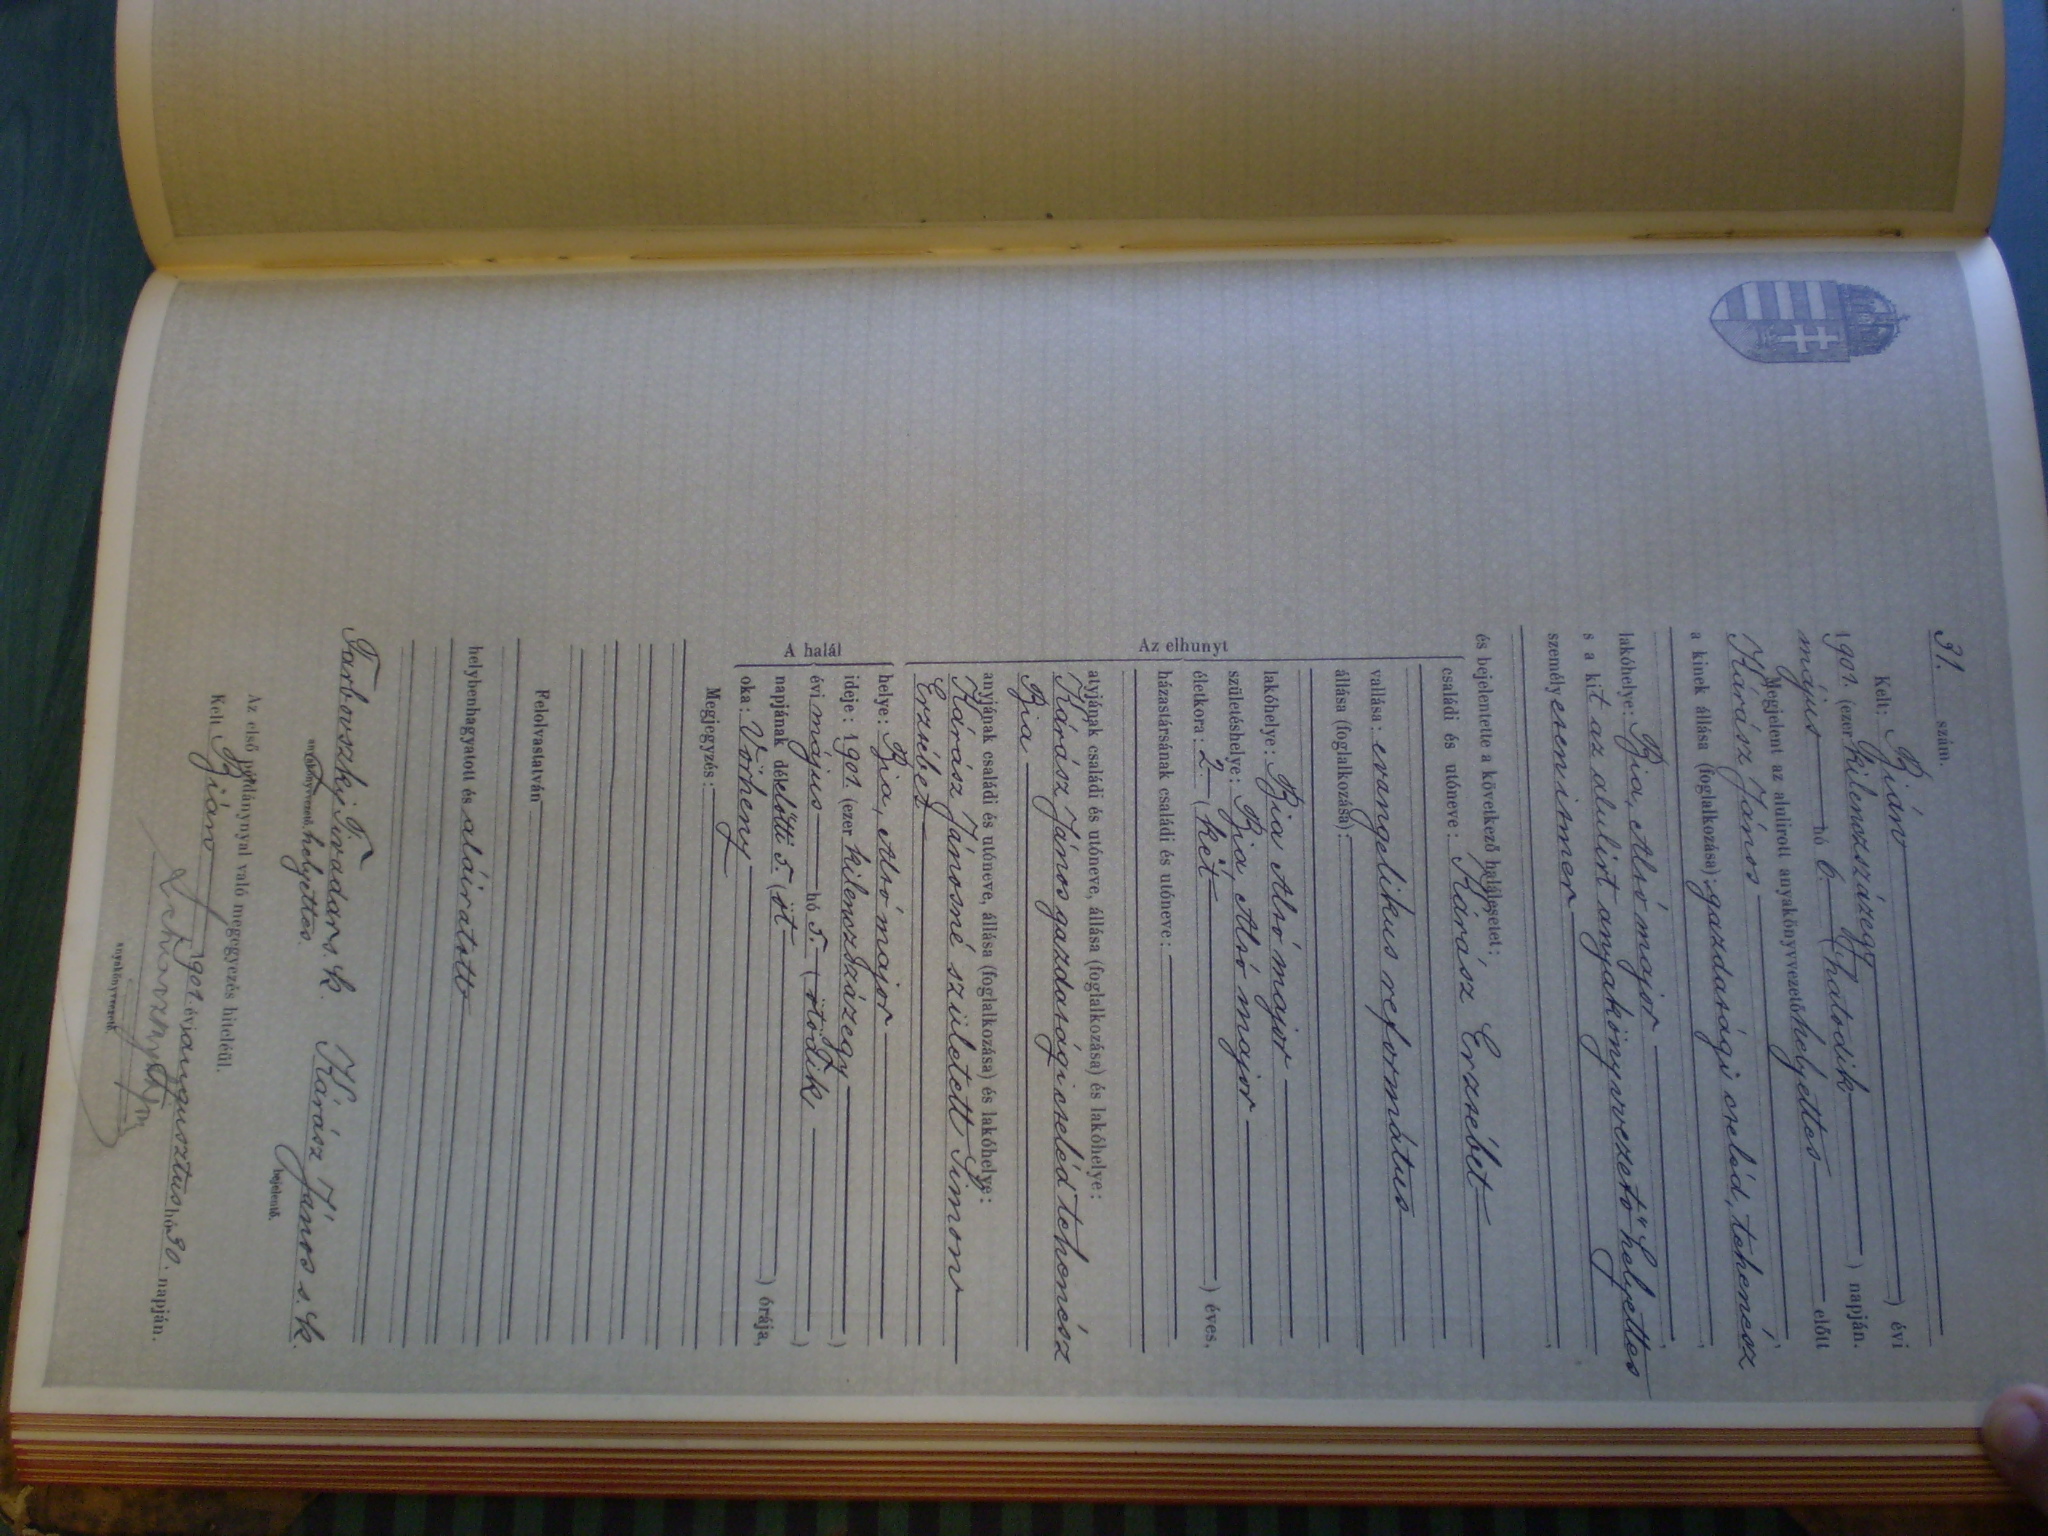 31. szám.
Kelt: Bián 1901. (ezer kilenczszázegy) évi
május hó 6. (hatodik) napján.
Megjelent az alulirott anyakönyvvezető helyettes előtt
Kárász János
a kinek állása (foglalkozása): gazdasági cseléd, tehenész,
lakóhelye: Bia, Alsó major,
s a kit az alulirt anyakönyvvezető helyettes
személyesen ismer,
és bejelentette a következő halálesetet:
Az elhunyt
családi és utóneve: Kárász Erzsébet
vallása: evangelikus református
állása (foglalkozása):
lakóhelye: Bia Alsó major
születéshelye: Bia, Alsó major
életkora: 2. (két) éves,
házastársának családi és utóneve:
atyjának családi és utóneve, állása (foglalkozása) és lakóhelye:
Kárász János gazdasági cseléd tehenész
Bia
anyjának családi és utóneve, állása (foglalkozása) és lakóhelye:
Kárász Jánosné született Simon
Erzsébet
A halál
helye: Bia, Alsó major
ideje: 1901. (ezer kilenczszázegy)
évi május hó 5. (ötödik)
napjának délelőtti 5. (öt) órája,
oka: Vörheny
Megjegyzés:
Felolvastatván
helybenhagyatott és aláiratott
Tarbovszky Tivadar s. k. Kárász János s. k.
anyakönyvvezető, helyettes. bejelentő.
Az első példánynyal való megegyezés hiteléül.
Kelt Bián 1901. évi augusztus hó 30. napján.
anyakönyvvezető.